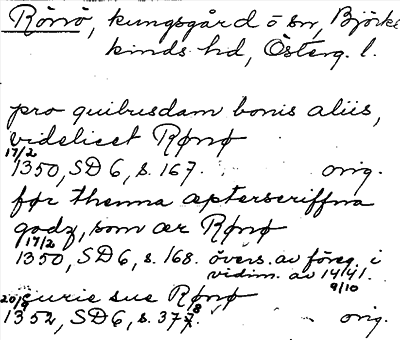 Rönö, kungsgård ö sn, Björke
kinds hd, Österg. l.
pro quibusdam bonis aliis,
videlicet Rønø
17/2
1350, SD 6, s. 167. orig.
før thenna æpterscriffna
godz, som ær Rønø
17/2
1350, SD 6, s. 168. övers. av föreg. i
vidim. av 14/4 1.
9/10
curie sue Rønø
20/9
1352, SD 6, s. 377. orig.
8